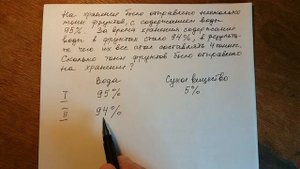 На хранение было отправлено несколько
тонн фруктов с содержанием воды
95%. За время хранения содержание
воды в фруктах стало 94%, в резуль-
те чего их вес стал составлять 4 тонн.
Сколько тонн фруктов было отправлено
на хранение?
Вода Сухое вещество
I 95% 5%
II 94%